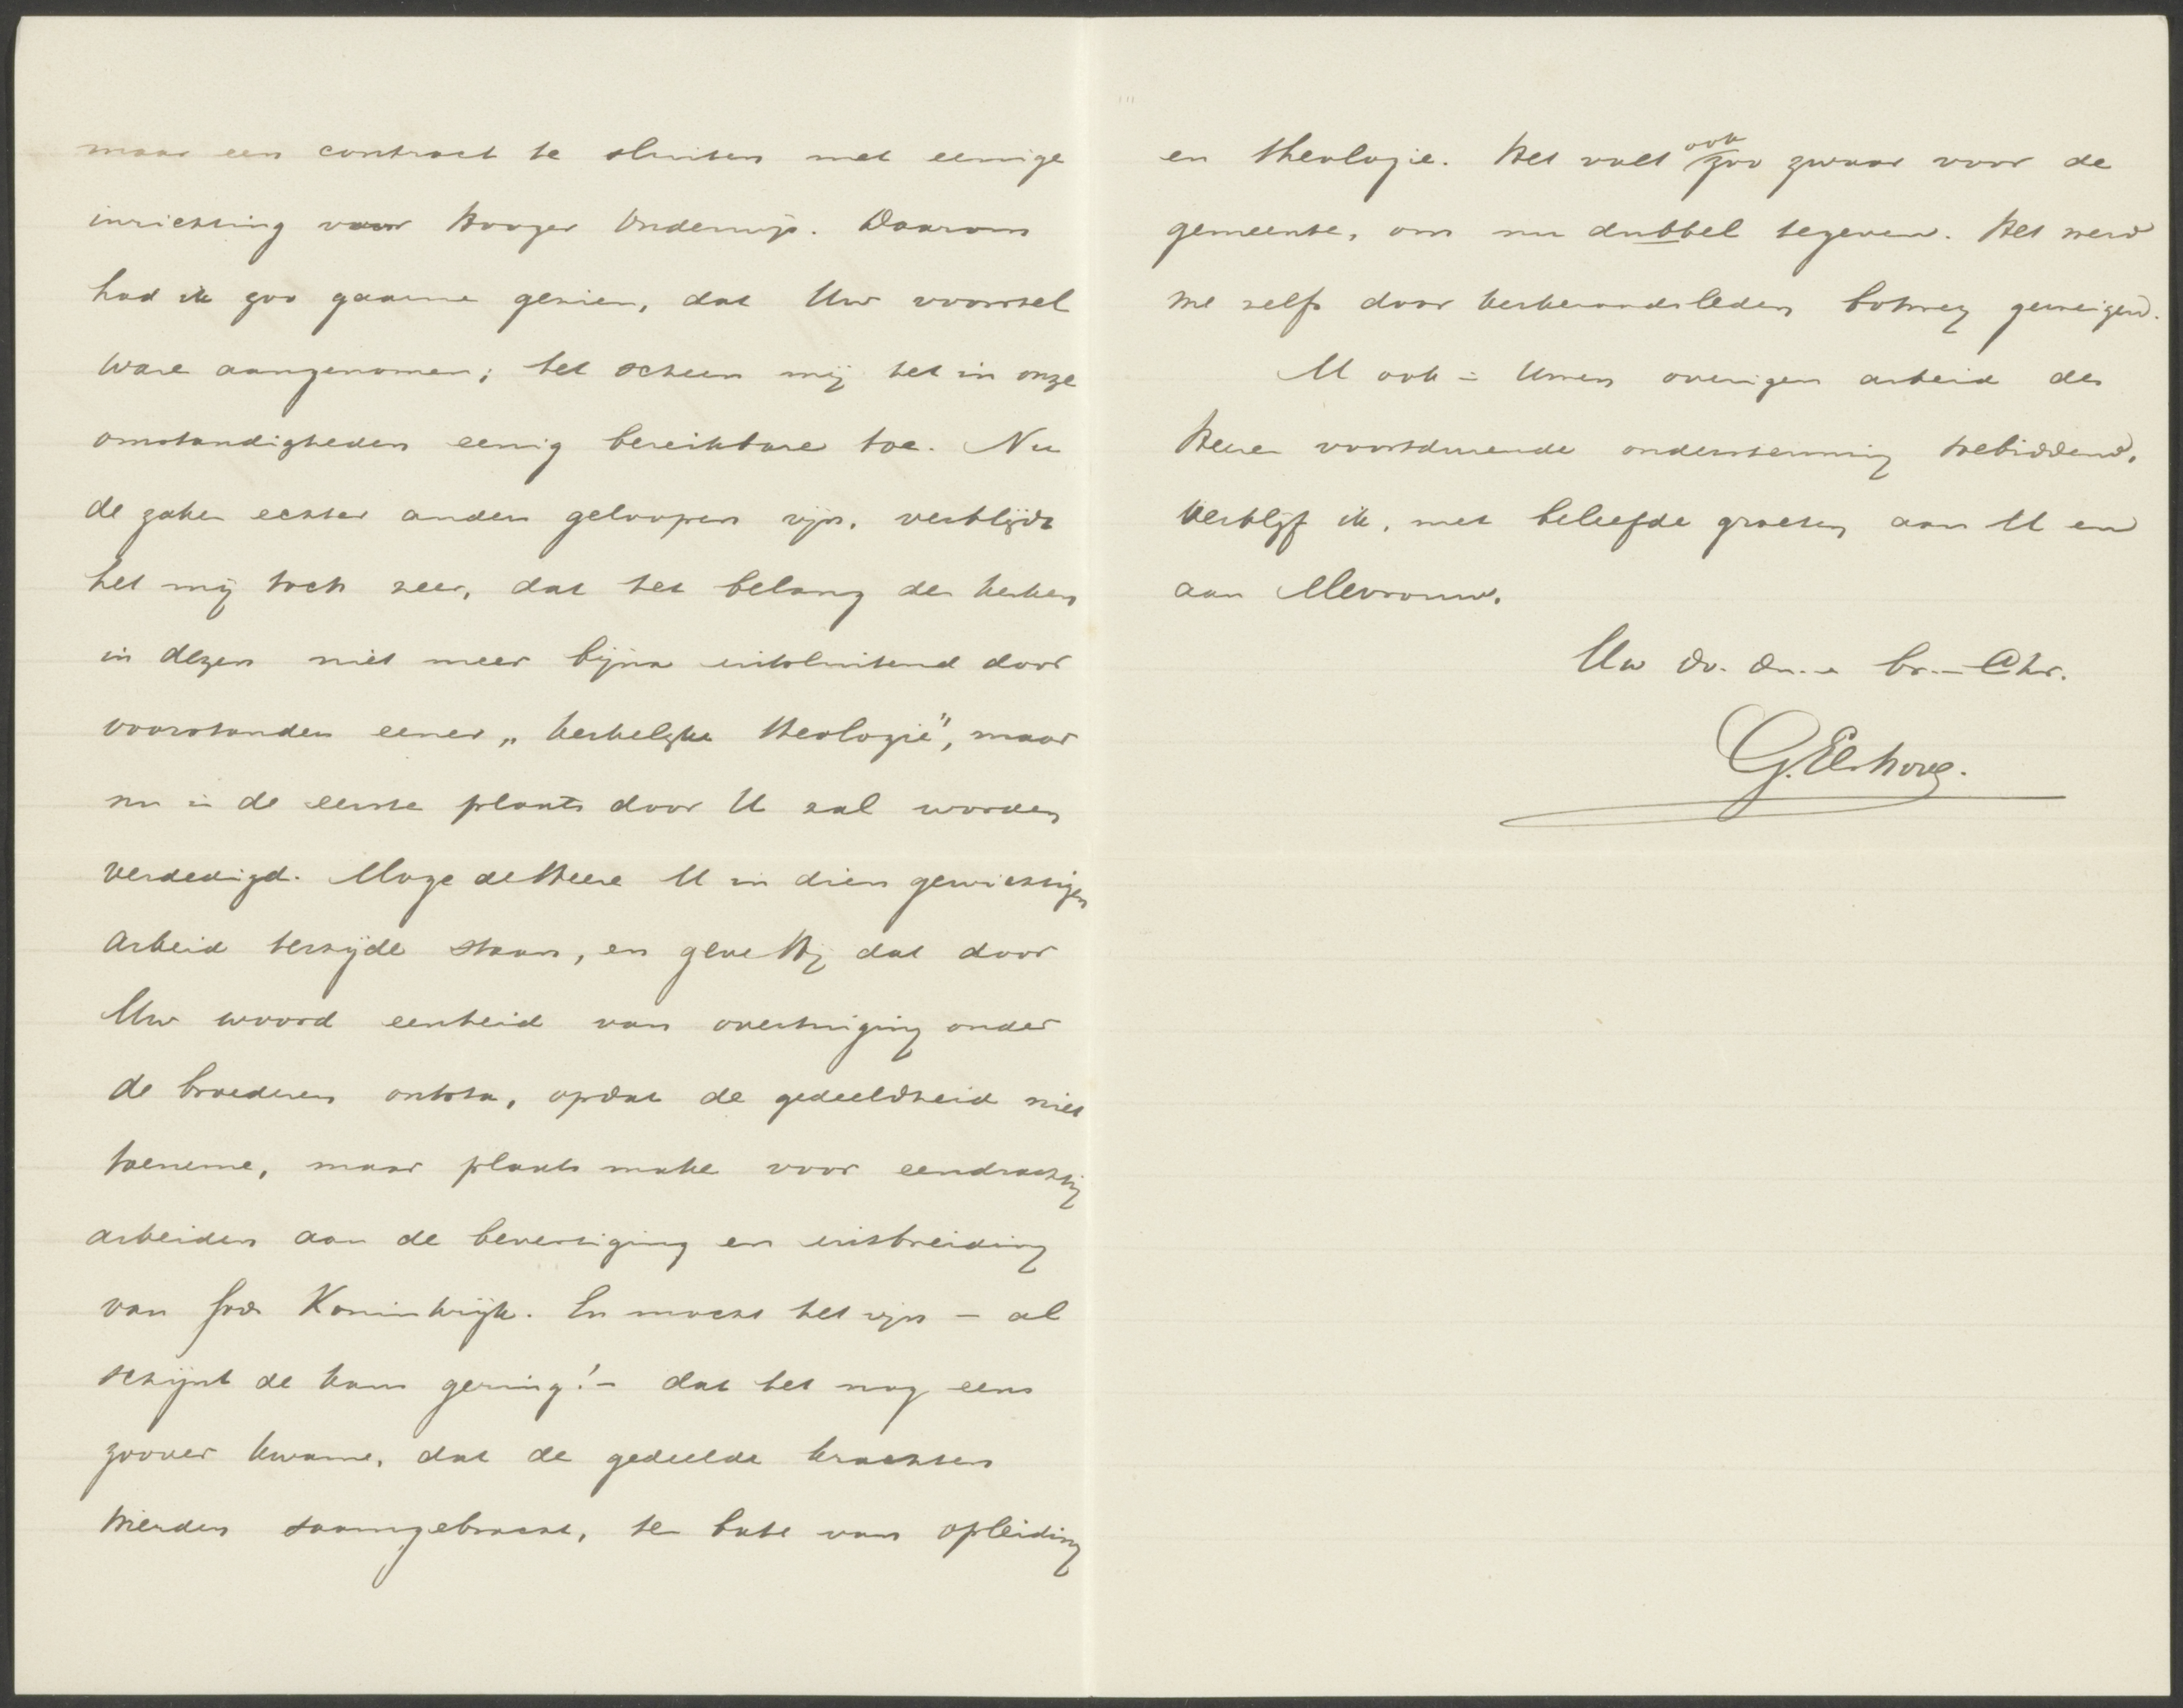 maar een contract te sluiten met eenige
inrichting voor Hooger Onderwijs. Daarom
had ik zoo gaarne gezien, dat Uw voorstel
ware aangenomen; het scheen mij het in onze
omstandigheden eenig bereikbare toe. Nu
de zaken echter anders geloopen zijn, verblijdt
het mij toch zeer, dat het belang der kerken
in dezen niet meer bijna uitsluitend door
voorstanders eener „kerkelijke theologie", maar
nu in de eerste plaats door U zal worden
verdedigd. Moge de Heere U in dien gewichtigen
arbeid terzijde staan, en geve Hij dat door
Uw woord eenheid van overtuiging onder
de broederen ontsta, opdat de gedeeldheid niet
toeneme, maar plaats make voor eendrachtig
arbeiden aan de bevestiging en uitbreiding
van Gods Koninkrijk. En mocht het zijn – al
schijnt de kans gering! – dat het nog eens
zoover kwame, dat de gedeelde krachten
werden saamgebracht, ten bate van opleiding
en theologie. Het valt ook zoo zwaar voor de
gemeente, om nu dubbel te geven. Het werd
me zelfs door kerkeraadsleden botweg geweigerd.
U ook in Uwen overigen arbeid des
Heeren voortdurende ondersteuning toebiddend,
verblijf ik, met beleefde groeten aan U en
aan Mevrouw,
Uw dv. dn. en br. in Chr.
G. Elshove.